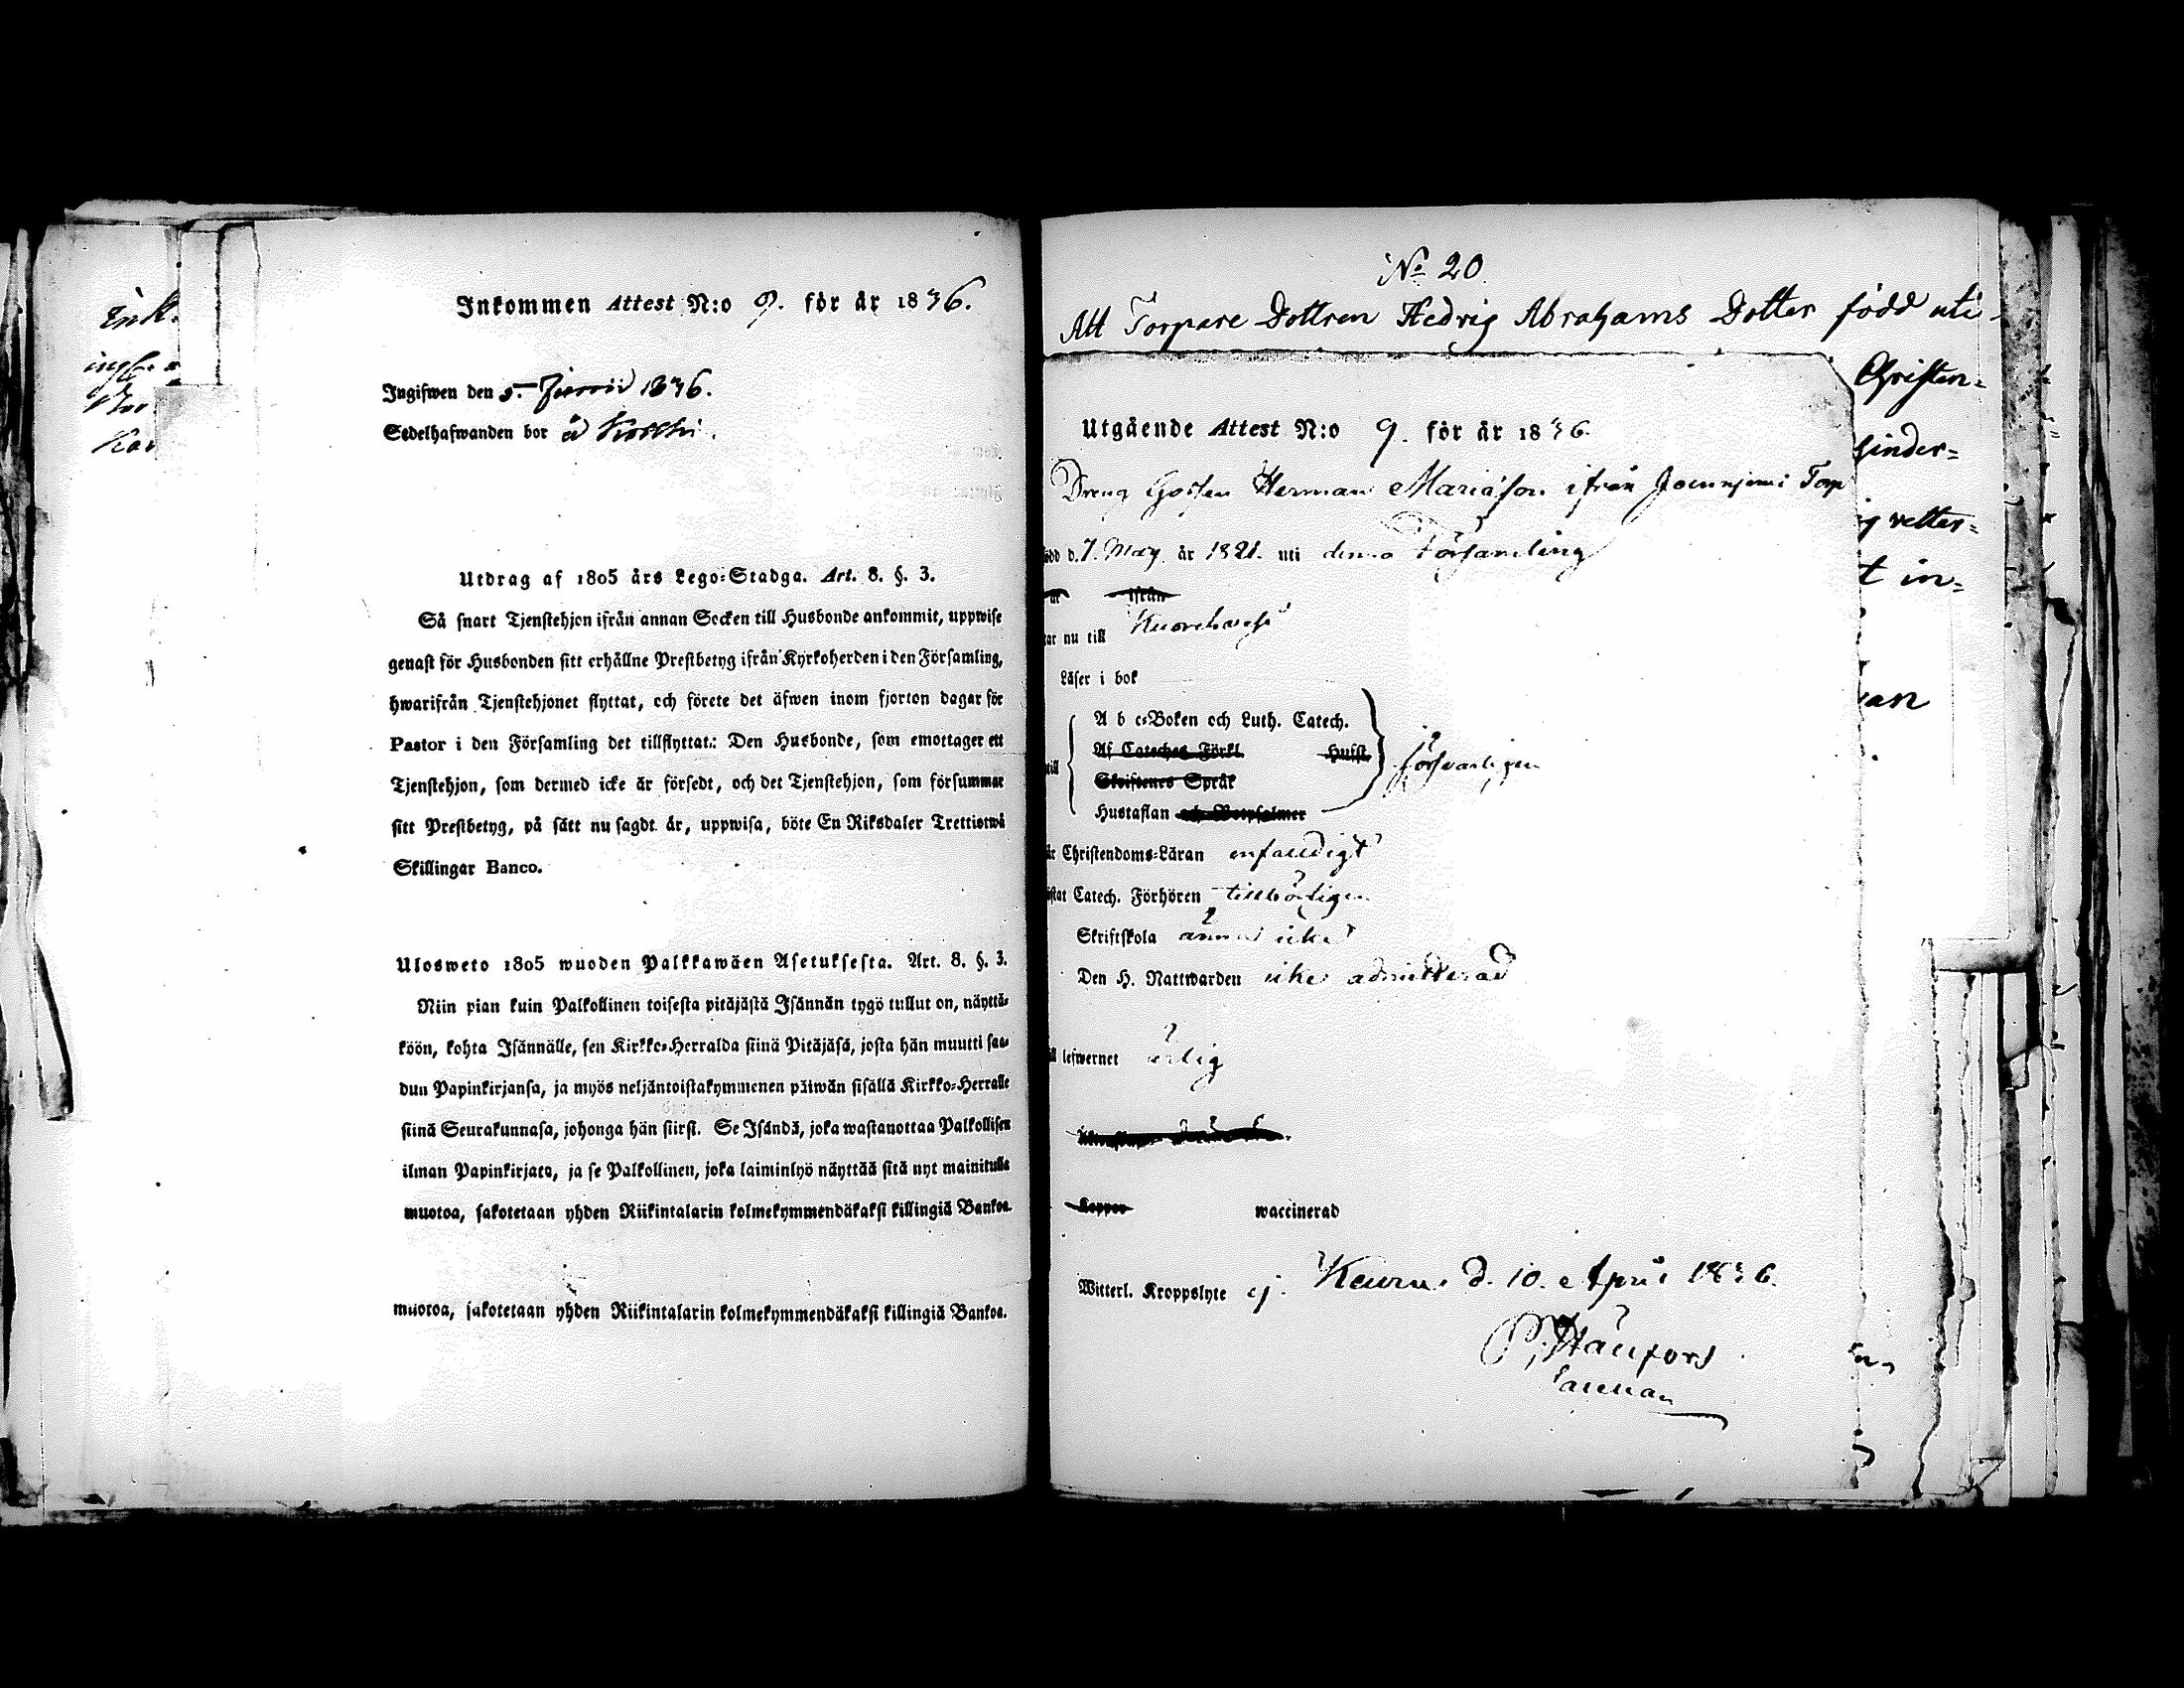 Ink.
Inkommen Attest N:o 9. för år 1836.
Ingifwen den 5. Junii 1836.
Sedelhafwanden bor å
Utdrag af 1805 års Lego-Stadga. Art. 8. §. 3.
Så snart Tjenstehjon ifrån annan Socken till Husbonde ankommit, uppwise
genast för Husbonden sitt erhållne Prestbetyg ifrån Kyrkoherden i den Församling,
hwarifrån Tjenstehjonet flyttat, och förete det äfwen inom fjorton dagar för
Pastor i den Församling det tillflyttat: Den Husbonde, som emottager ett
Tjenstehjon, som dermed icke är försedt, och det Tjenstehjon, som försummar
sitt Prestbetyg, på sätt nu sagdt är, uppwisa, böte En Riksdaler Trettiotwå
Skillingar Banco.
Ulosweto 1805 wuoden Palkkawäen Asetuksesta. Art. 8. §. 3.
Niin pian kuin Palkollinen toisesta pitäjästä Isännän tygö tullut on, näyttä-
köön, kohta Isännälle, sen Kirkko-Herralda siinä Pitäjäsä, josta hän muutti saa-
dun Papinkirjansa, ja myös neljäntoistakymmenen päiwän sisällä Kirkko-Herralle
siinä Seurakunnasa, johonga hän siirsi. Se Isändä, joka wastanottaa Palkollisen
ilman Papinkirjata, ja se Palkollinen, joka laiminlyö näyttää sitä nyt mainitulla
muotoa, sakotetaan yhden Riikintalarin kolmekymmendäkaksi killingiä Bankoa.
muotoa, sakotetaan yhden Riikintalarin kolmekymmendäkaksi killingiä Bankoa.
No 20
Att Torpare Dottren Hedvig Abrahams Dotter född uti
Christen-
sinder-
vetter-
t in-
Utgående Attest N:o 9. för år 1836
Dreng Gossen Herman Mariæson ifrån Torp
ödd d. 7. May år 1821. uti denna Församling
är ifrån
tar nu till
Läser i bok
A b c-Boken och Luth. Catech.
Af Cateches Förkl. Hufst.
Skriftenes Språk
till
Hustaflan och Botpsalmer
försvarligen
är Christendoms-Läran enfaldigt
istat Catech. Förhören tillbörligen
Skriftskola ännu icke
Den H. Nattwarden icke admitterad
ll lefwernet ärlig
Koppor waccinerad
Witterl. Kroppslyte ej. Keuru d. 10. April 1836.